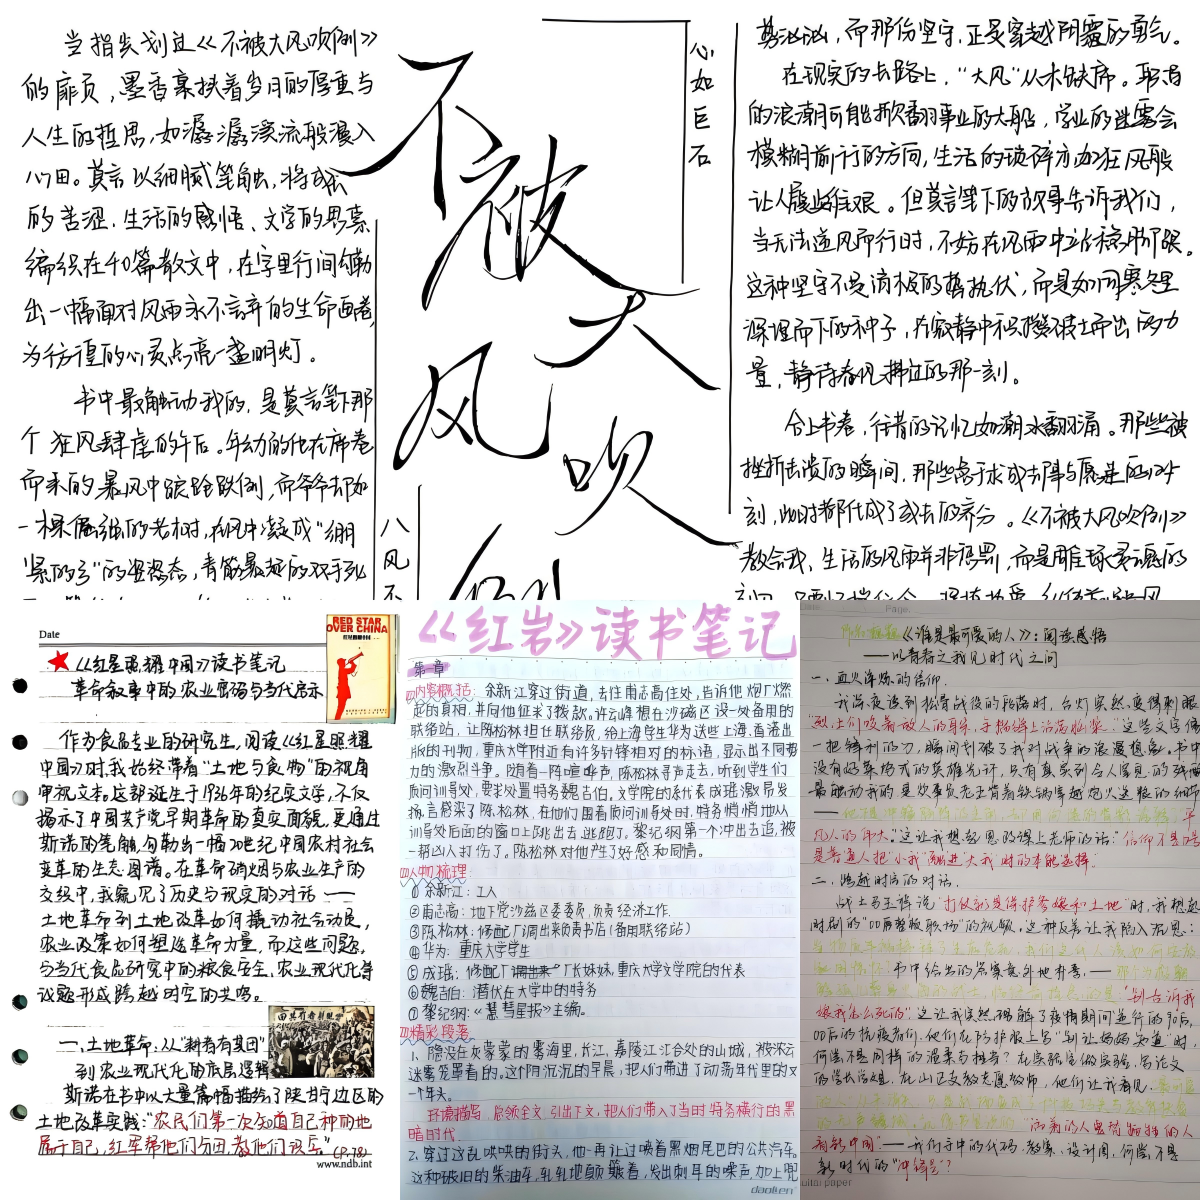 当指尖划过《不被大风吹倒》
的扉页，墨香裹挟着岁月的厚重与
人生的哲思，如潺潺溪流般漫入
心田。莫言以细腻笔触，将成长
的苦涩、生活的感悟、文学的思索
编织在40篇散文中，在字里行间勾勒
出一幅面对风雨永不言弃的生命画卷，
为彷徨的心灵点亮一盏明灯。
书中最触动我的，是莫言笔下那
个狂风肆虐的午后。年幼的他在席卷
而来的暴风中踉跄跌倒，而爷爷却如
一棵倔强的老树，在风中凝成“绷
紧的弓”的坚毅姿态，青筋暴起的双手死
不被大风吹倒
心如巨石
八风不
势汹汹，而那份坚守，正是穿越阴霾的勇气。
在现实的长路上，“大风”从未缺席。职场
的浪潮可能掀翻事业的大船，学业的迷雾会
模糊前行的方向，生活的琐碎亦如狂风般
让人履步维艰。但莫言笔下的故事告诉我们，
当无法逆风而行时，不妨在风雨中站稳脚跟。
这种坚守不是消极的蛰伏，而是如同寒冬里
深埋雪下的种子，在寂静中积攒破土而出的力
量，静待春风拂过的那一刻。
合上书卷，往昔的记忆如潮水翻涌。那些被
挫折击溃的瞬间，那些
刻，此时都化成了成长的养分。《不被大风吹倒》
教会我，生活的风雨并非惩罚，而是雕琢灵魂的
Date
RED STAR
OVER CHINA
《红星照耀中国》读书笔记
革命叙事中的农业密码与当代启示
作为食品专业的研究生，阅读《红星照耀
中国》时，我始终带着“土地与食物”的视角
审视文本。这部诞生于1936年的纪实文学，不仅
揭示了中国共产党早期革命的真实面貌，更通过
斯诺的笔触，勾勒出一幅20世纪中国农村社会
变革的生态图谱。在革命硝烟与农业生产的
交织中，我窥见了历史与现实的对话——
土地革命到土地改革如何撬动社会动员，
农业政策如何塑造革命力量，而这些问题，
与当代食品研究中的粮食安全、农业现代化等
议题形成跨越时空的共鸣。
一、土地革命：从“耕者有其田”
到农业现代化的底层逻辑
斯诺在书中以大量篇幅描绘了陕甘宁边区的
土地改革实践：“农民们第一次知道自己种的地
属于自己，红军帮他们分田，教他们识字”（P.78）
www.ndb.int
《红岩》读书笔记
第一章
内容概括：余新江穿过街道，去往甫志高住处，告诉他炮厂燃
起的真相，并向他征求了拨款。许云峰想在沙磁区设一处备用的
联络站，让陈松林担任联络员，给上海学生华为送些上海、香港出
版的刊物，重庆大学附近有许多针锋相对的标语，显示出不同势
力的激烈斗争。随着一阵喧哗声，陈松林寻声走去，听到学生们
质问训导处，要求处置特务魏吉伯。文学院的系代表成瑶激昂发
扬言感染了陈松林，在他们围着质问训导处时，特务悄悄地从
训导处后面的窗口上跳出去逃跑了。黎纪纲第一个冲出去追，被
一帮凶人打伤了。陈松林对他产生了好感和同情。
人物梳理：
①余新江：工人
②甫志高：地下党沙磁区委委员，负责经济工作.
③陈松林：修配厂调出来负责书店（备用联络站）
④华为：重庆大学学生
⑤成瑶：修配厂厂长妹妹，重庆大学文学院的代表
⑥魏吉伯：潜伏在大学中的特务
⑦黎纪纲：《彗星报》主编。
精彩段落
1、隐没在灰蒙蒙的雾海里，长江、嘉陵江汇合处的山城，被浓云
迷雾笼罩着的。这个阴沉沉的早晨，把人们带进了动荡年代里的又
一个年头。
环境描写，总领全文，引出下文，把人们带入了当时特务横行的黑
暗时代。
2、穿过这乱哄哄的街头，他一再让过喷着黑烟尾巴的公共汽车。
这种破旧的柴油车，轧轧地颠簸着，发出刺耳的噪声，加上兜
daolen
Date Page
《谁是最可爱的人》：阅读感悟
——以青春之我见时代之问
一．血火淬炼的信仰．
我深夜读到松骨战役的段落时，台灯突然变得刺眼
“烈士们咬着敌人的耳朵，手榴弹上沾满脑浆．”这些文字像
一把锋利的刀，瞬间划破了我对战争的浪漫想象．书中
没有好莱坞式的英雄光环，只有真实到令人窒息的残酷
凡人的伟大”．这让我想起思政课上老师的话：“信仰不是口号
是普通人把‘小我’融进‘大我’时的本能选择．
二．跨越时空的对话．
战士马玉祥说“打仗就是保护爹娘和土地”时，我想起
时刷的“00后整顿职场”的视频．这种反差让我陷入沉思：
书中给出的答案意外地朴素——
“别告诉我
娘我怎么死的”这让我突然理解了疫情期间逆行的90后，
00后的抗疫者们．他们在防护服上写“别让妈妈知道”时，
何尝不是同样的温柔与担当？在实验室做实验、写论文
的学长学姐，在山区支教志愿教师，他们让我看见，
新时代的“冲锋号”？